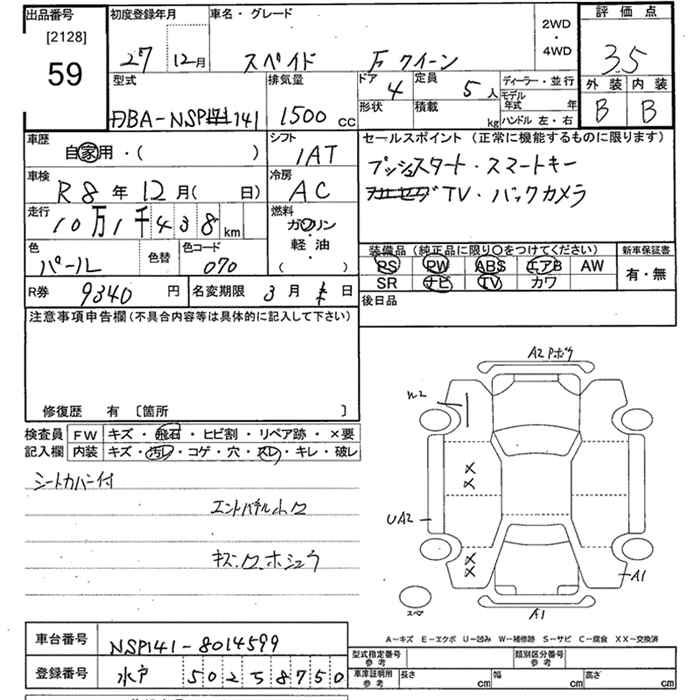 出品番号
[2128]
59
初度登録年月
27 12月
車名・グレード
スペイド F クイーン
2WD
・
4WD
評価点
3.5
外装 内装
B B
型式
DBA-NSP141
排気量
1500 cc
ドア 4
形状
定員 5 人
積載 kg
ディーラー・並行
モデル年式 年
ハンドル 左・右
車歴
自家用・( )
シフト
IAT
車検
R8 年 12月( 日)
冷房
AC
走行
10万1千438 km
燃料
ガソリン
・
軽油
( )
色
パール
色替
色コード
070
R券 9340 円
名変期限 3 月 日
セールスポイント(正常に機能するものに限ります)
プッシュスタート・スマートキー
TV・バックカメラ
装備品(純正品に限り○をつけてください)
PS PW ABS エアB AW
SR ナビ TV カワ
新車保証書
有・無
後日品
注意事項申告欄(不具合内容等は具体的に記入して下さい)
修復歴 有 〔箇所 〕
検査員 FW キズ・飛石・ヒビ割・リペア跡・×要
記入欄 内装 キズ・汚レ・コゲ・穴・スレ・キレ・破レ
シートカバー付
エントパネル小ワ
キズ・ワ・ホシュウ
A2 Pボウ
W2
×
×
UA2
×
×
A1
スペア
A1
A-キズ E-エクボ U-凹み W-補修跡 S-サビ C-腐食 XX-交換済
車台番号 NSP141-8014599
登録番号 水戸 502 5 8750
型式指定番号 参考
類別区分番号 参考
車庫証明用 参考 長さ cm 幅 cm 高さ cm